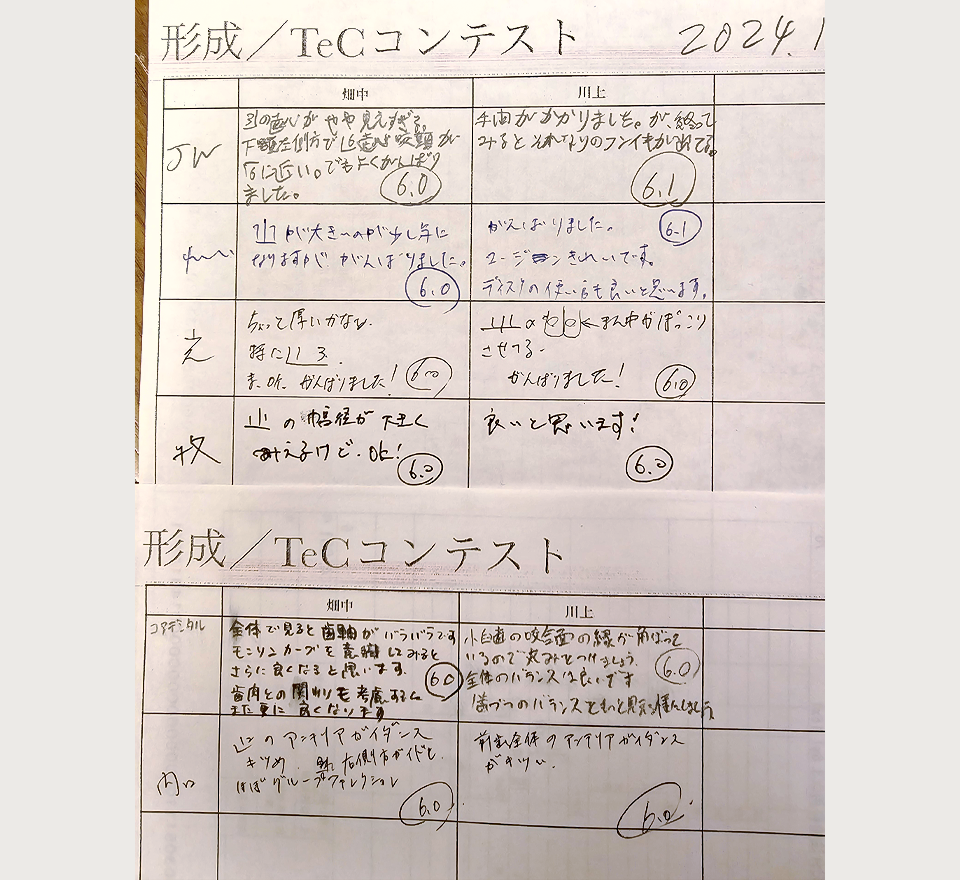 形成／TeCコンテスト 2024.1
畑中 川上
JW
3|の歯心がやや見えすぎる。
下顎左側方で
に近い。でもよくがんばり
ました。
6.0
手間がかかりました。が、終って
みるとそれなりのフンイキが出てる。
6.1
が大きいのが少し気に
なりますが、がんばりました。
6.0
がんばりました。
6.1
きれいです。
ディスクの使い方も良いと思います。
ちょって厚いかな、
特に 3.
ま、OK、がんばりました！
6.0
まん中がぽっこり
させてる。
がんばりました！
6.0
牧
の幅径が大きく
みえるけど、OK！
6.0
良いと思います！
6.0
形成／TeCコンテスト
畑中 川上
コアデンタル
全体で見ると歯軸がバラバラです
モンソンカーブを意識してみると
さらに良くなると思います。
歯肉との関わりも考慮すると
また更に良くなります
6.0
小臼歯の咬合面の縁が角ばって
いるので丸みをつけましょう。
全体のバランスは良いです
6.0
内口
のアンテリアガイダンス
キツめ、右側方ガイドと、
ほぼグループファンクション
6.0
前歯全体のアンテリアガイダンス
がキツい、
6.0